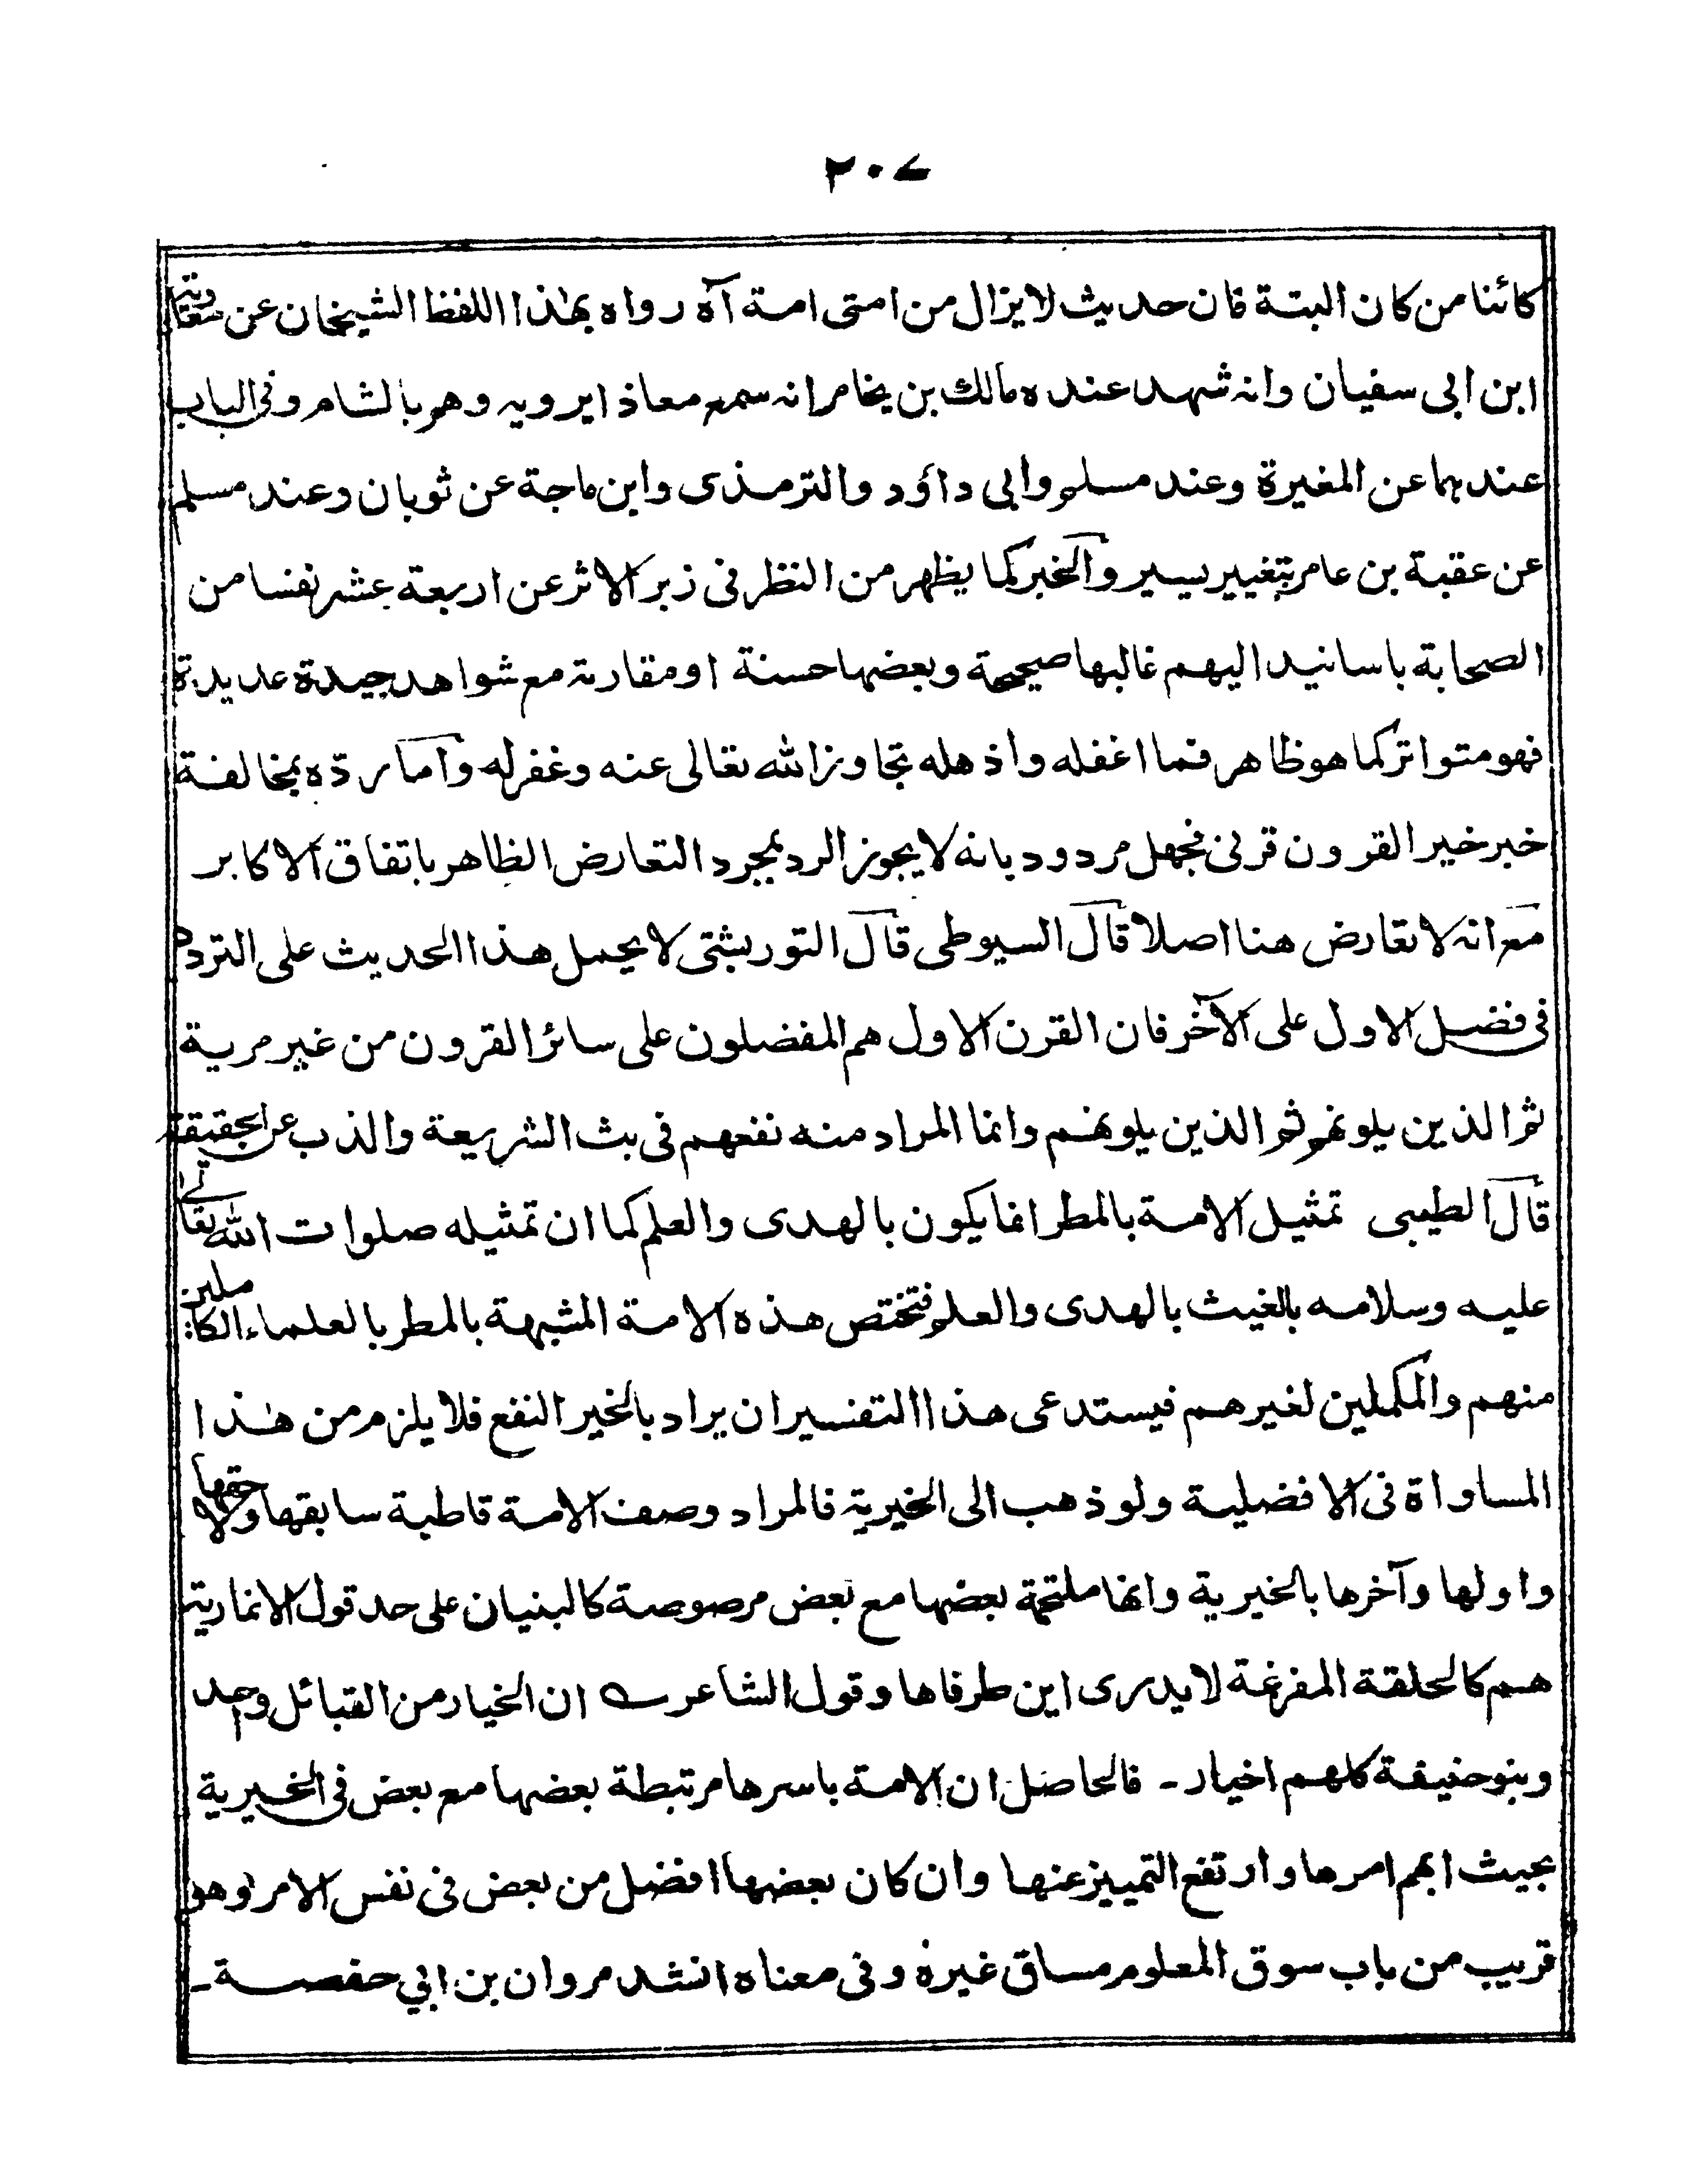 ٢٠٧
كائنا من كان البتة فان حديث لا يزال من امتى امة آه رواه بهٰذا اللفظ الشيخان عن معٰوية
ابن ابى سفيان وانه شهد عنده مالك بن يخامر انه سمع معاذا يرويه وهو بالشام وفى الباب
عندهما عن المغيرة وعند مسلم وابى داؤد والترمذى وابن ماجة عن ثوبان وعند مسلم
عن عقبة بن عامر بتغيير يسير والخبر كما يظهر من النظر فى زبر الاثر عن اربعة عشر نفسا من
الصحابة باسانيد اليهم غالبها صحيحة وبعضها حسنة او مقاربة مع شواهد جيدة عديدة
فهو متواتر كما هو ظاهر فما اغفله واذهله تجاوز الله تعالى عنه وغفر له وأما رده بمخالفة
خبر خير القرون قرنى فجهل مردود بانه لا يجوز الرد بمجرد التعارض الظاهر باتفاق الاكابر
مع انه لا تعارض هنا اصلا قال السيوطى قال التوربشتى لا يحمل هذا الحديث على التردد
فى فضل الاول على الآخر فان القرن الاول هم المفضلون على سائر القرون من غير مرية
ثم الذين يلونهم ثم الذين يلونهم وانما المراد منه نفعهم فى بث الشريعة والذب عن الحقيقة
قال الطيبى تمثيل الامة بالمطر انما يكون بالهدى والعلم كما ان تمثيله صلوات الله تعالى
عليه وسلامه بالغيث بالهدى والعلم فتختص هذه الامة المشبهة بالمطر بالعلماء الكاملين
منهم والمكملين لغيرهم فيستدعى هذا التفسير ان يراد بالخير النفع فلا يلزم من هٰذا
المساواة فى الافضلية ولو ذهب الى الخيرية فالمراد وصف الامة قاطبة سابقها ولاحقها
واولها وآخرها بالخيرية وانها ملتحمة بعضها مع بعض مرصوصة كالبنيان على حد قول الانمارية
هم كالحلقة المفرغة لا يدرى اين طرفاها وقول الشاعر ان الخيار من القبائل واحد
وبنو حنيفة كلهم اخيار - فالحاصل ان الامة باسرها مرتبطة بعضها مع بعض فى الخيرية
بحيث ابهم امرها وارتفع التمييز عنها وان كان بعضها افضل من بعض فى نفس الامر وهو
قريب من باب سوق المعلوم مساق غيره وفى معناه انشد مروان بن ابي حفصة -